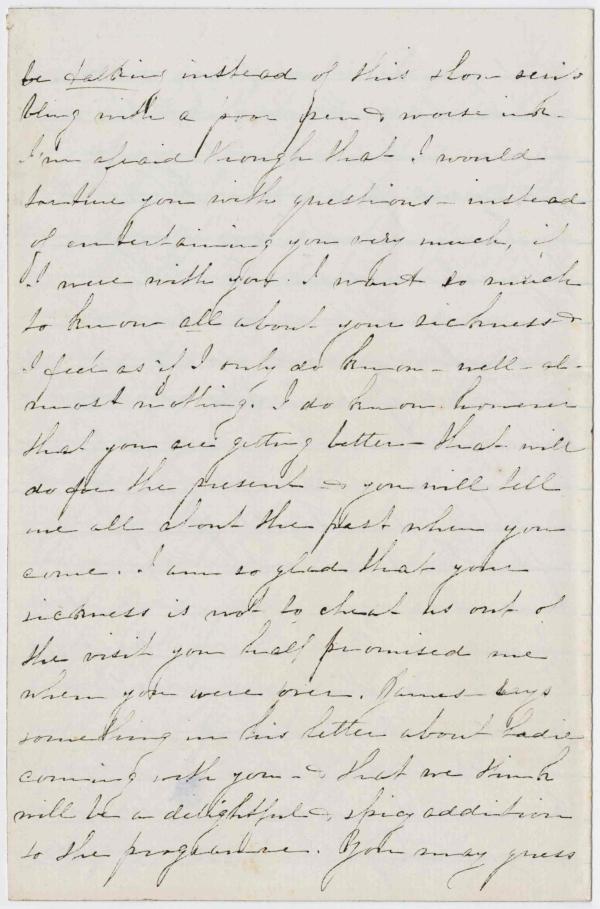 be talking instead of this slow scrib
bling with a poor pen & worse ink.
I'm afraid though that I would
torture you with questions - instead
of entertaining you very much, if
I were with you. I want so much
to know all about your sickness &
I feel as if I only do know - well - al-
most nothing. I do know however
that you are getting better - that will
do for the present - & you will tell
me all about the past when you
come. I am so glad that your
sickness is not to cheat us out of
the visit you half promised me
when you were over. James says
something in his letter about Sadie
coming with you - & that we think
will be a delightful & spicy addition
to the programme. You may guess